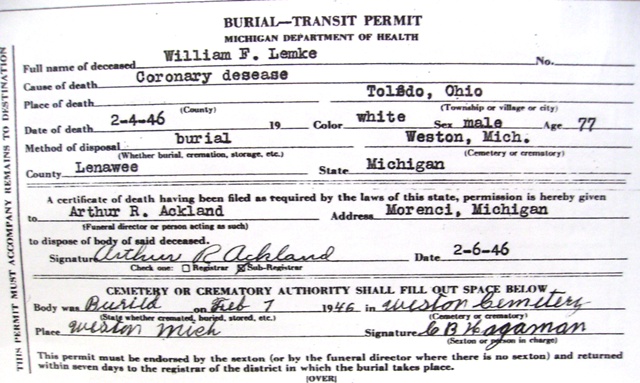 BURIAL—TRANSIT PERMIT
MICHIGAN DEPARTMENT OF HEALTH
Full name of deceased William F. Lemke No.
Cause of death Coronary desease
Place of death Toledo, Ohio
(County) (Township or village or city)
Date of death 2-4-46 19 Color white Sex male Age 77
Method of disposal burial Weston, Mich.
(Whether burial, cremation, storage, etc.) (Cemetery or crematory)
County Lenawee State Michigan
A certificate of death having been filed as required by the laws of this state, permission is hereby given
to Arthur R. Ackland Address Morenci, Michigan
(Funeral director or person acting as such)
to dispose of body of said deceased.
Signature Arthur R Ackland Date 2-6-46
Check one: Registrar Sub-Registrar
CEMETERY OR CREMATORY AUTHORITY SHALL FILL OUT SPACE BELOW
Body was Burild on Feb 7 1946 in Weston Cemetery
(State whether cremated, buried, stored, etc.) (Cemetery or crematory)
Place Weston Mich Signature C B Hagaman
(Sexton or person in charge)
This permit must be endorsed by the sexton (or by the funeral director where there is no sexton) and returned
within seven days to the registrar of the district in which the burial takes place.
[OVER]
THIS PERMIT MUST ACCOMPANY REMAINS TO DESTINATION